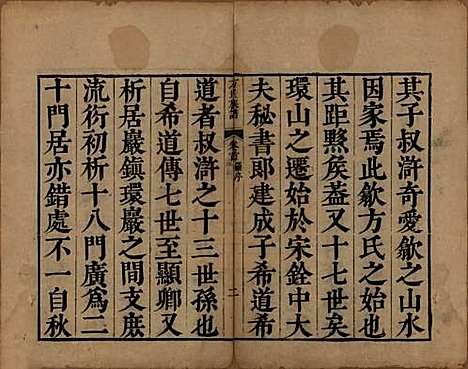 其子叔滸奇愛歙之山水
因家焉此歙方氏之始也
其距黟矦葢又十七世矣
環山之遷始於宋銓中大
夫秘書郞建成子希道希
方氏族譜
卷首
序
二
道者叔滸之十三世孫也
自希道傳七世至顯卿又
析居巖鎮環巖之間支庻
流衍初析十八門廣爲二
十門居亦錯處不一自秋